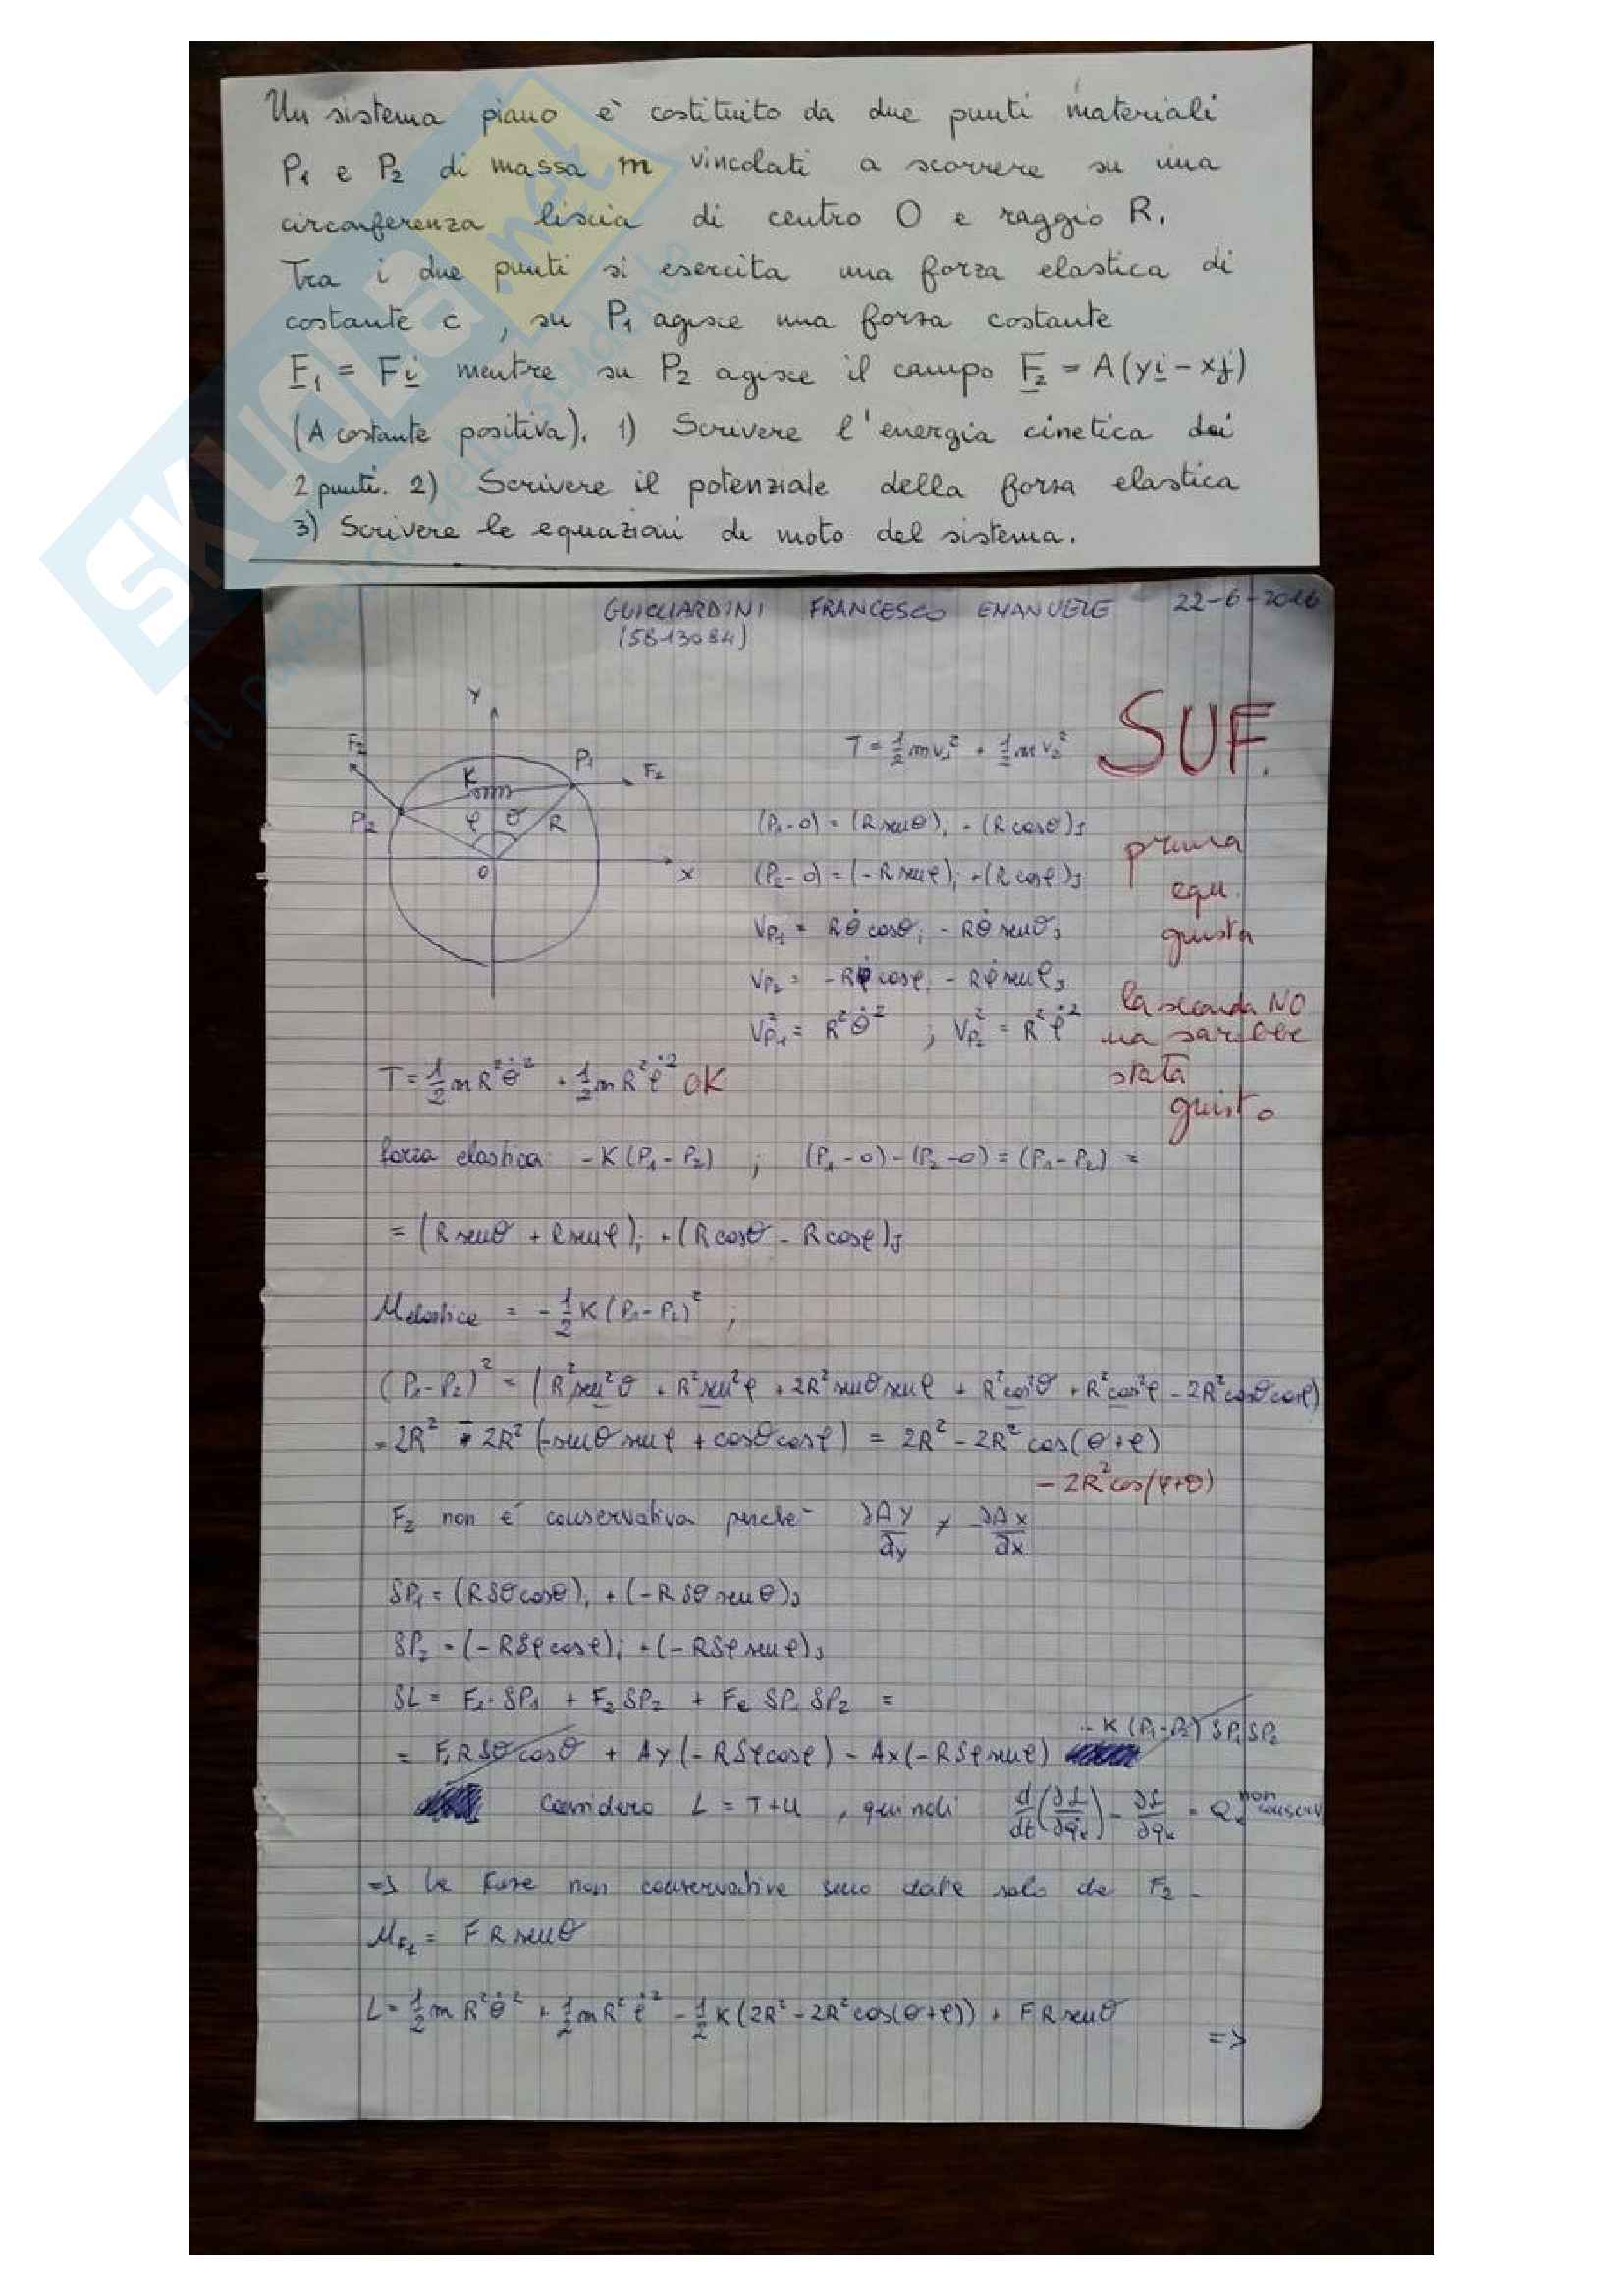 Un sistema piano è costituito da due punti materiali
P₁ e P₂ di massa m vincolati a scorrere su una
circonferenza liscia di centro O e raggio R.
Tra i due punti si esercita una forza elastica di
costante c, su P₁ agisce una forza costante
F₁ = Fi mentre su P₂ agisce il campo F₂ = A(yi - xj)
(A costante positiva). 1) Scrivere l'energia cinetica dei
2 punti. 2) Scrivere il potenziale della forza elastica
3) Scrivere le equazioni di moto del sistema.
SKUOLA.net
GUIGLIARDINI FRANCESCO EMANUELE 22-6-2016
(5813084)
SUF.
Y
F₂
P₁
F₁
K
P₂
φ θ R
O
X
T = ½mv₁² + ½mv₂²
(P₁-O) = (R senθ)i + (R cosθ)j
(P₂-O) = (-R senφ)i + (R cosφ)j
prima
equ.
giusta
V_P₁ = Rθ̇ cosθi - Rθ̇ senθj
V_P₂ = -Rφ̇ cosφi - Rφ̇ senφj
V²_P₁ = R²θ̇² ; V²_P₂ = R²φ̇²
la seconda NO
ma sarebbe
stata
giusto
T = ½mR²θ̇² + ½mR²φ̇² OK
forza elastica: -K(P₁-P₂) ; (P₁-O)-(P₂-O) = (P₁-P₂) =
= (R senθ + R senφ)i + (R cosθ - R cosφ)j
U elastica = -½K(P₁-P₂)² ;
(P₁-P₂)² = (R²sen²θ + R²sen²φ + 2R²senθsenφ + R²cos²θ + R²cos²φ - 2R²cosθcosφ)
= 2R² - 2R²(-senθsenφ + cosθcosφ) = 2R² - 2R²cos(θ+φ)
- 2R²cos(φ+θ)
F₂ non è conservativa perché ∂Ay/∂y ≠ -∂Ax/∂x
δP₁ = (Rδθcosθ)i + (-Rδθsenθ)j
δP₂ = (-Rδφcosφ)i + (-Rδφsenφ)j
δL = F₁·δP₁ + F₂δP₂ + Fe δP₁ δP₂ =
= F₁Rδθcosθ + Ay(-Rδφcosφ) - Ax(-Rδφsenφ) - K(P₁-P₂)δP₁δP₂
Considero L = T+U, quindi d/dt(∂L/∂q̇ₖ) - ∂L/∂qₖ = Qₖ non conserv
=> le forze non conservative sono date solo da F₂.
U_F₁ = FR senθ
L = ½mR²θ̇² + ½mR²φ̇² - ½K(2R² - 2R²cos(θ+φ)) + FR senθ
=>